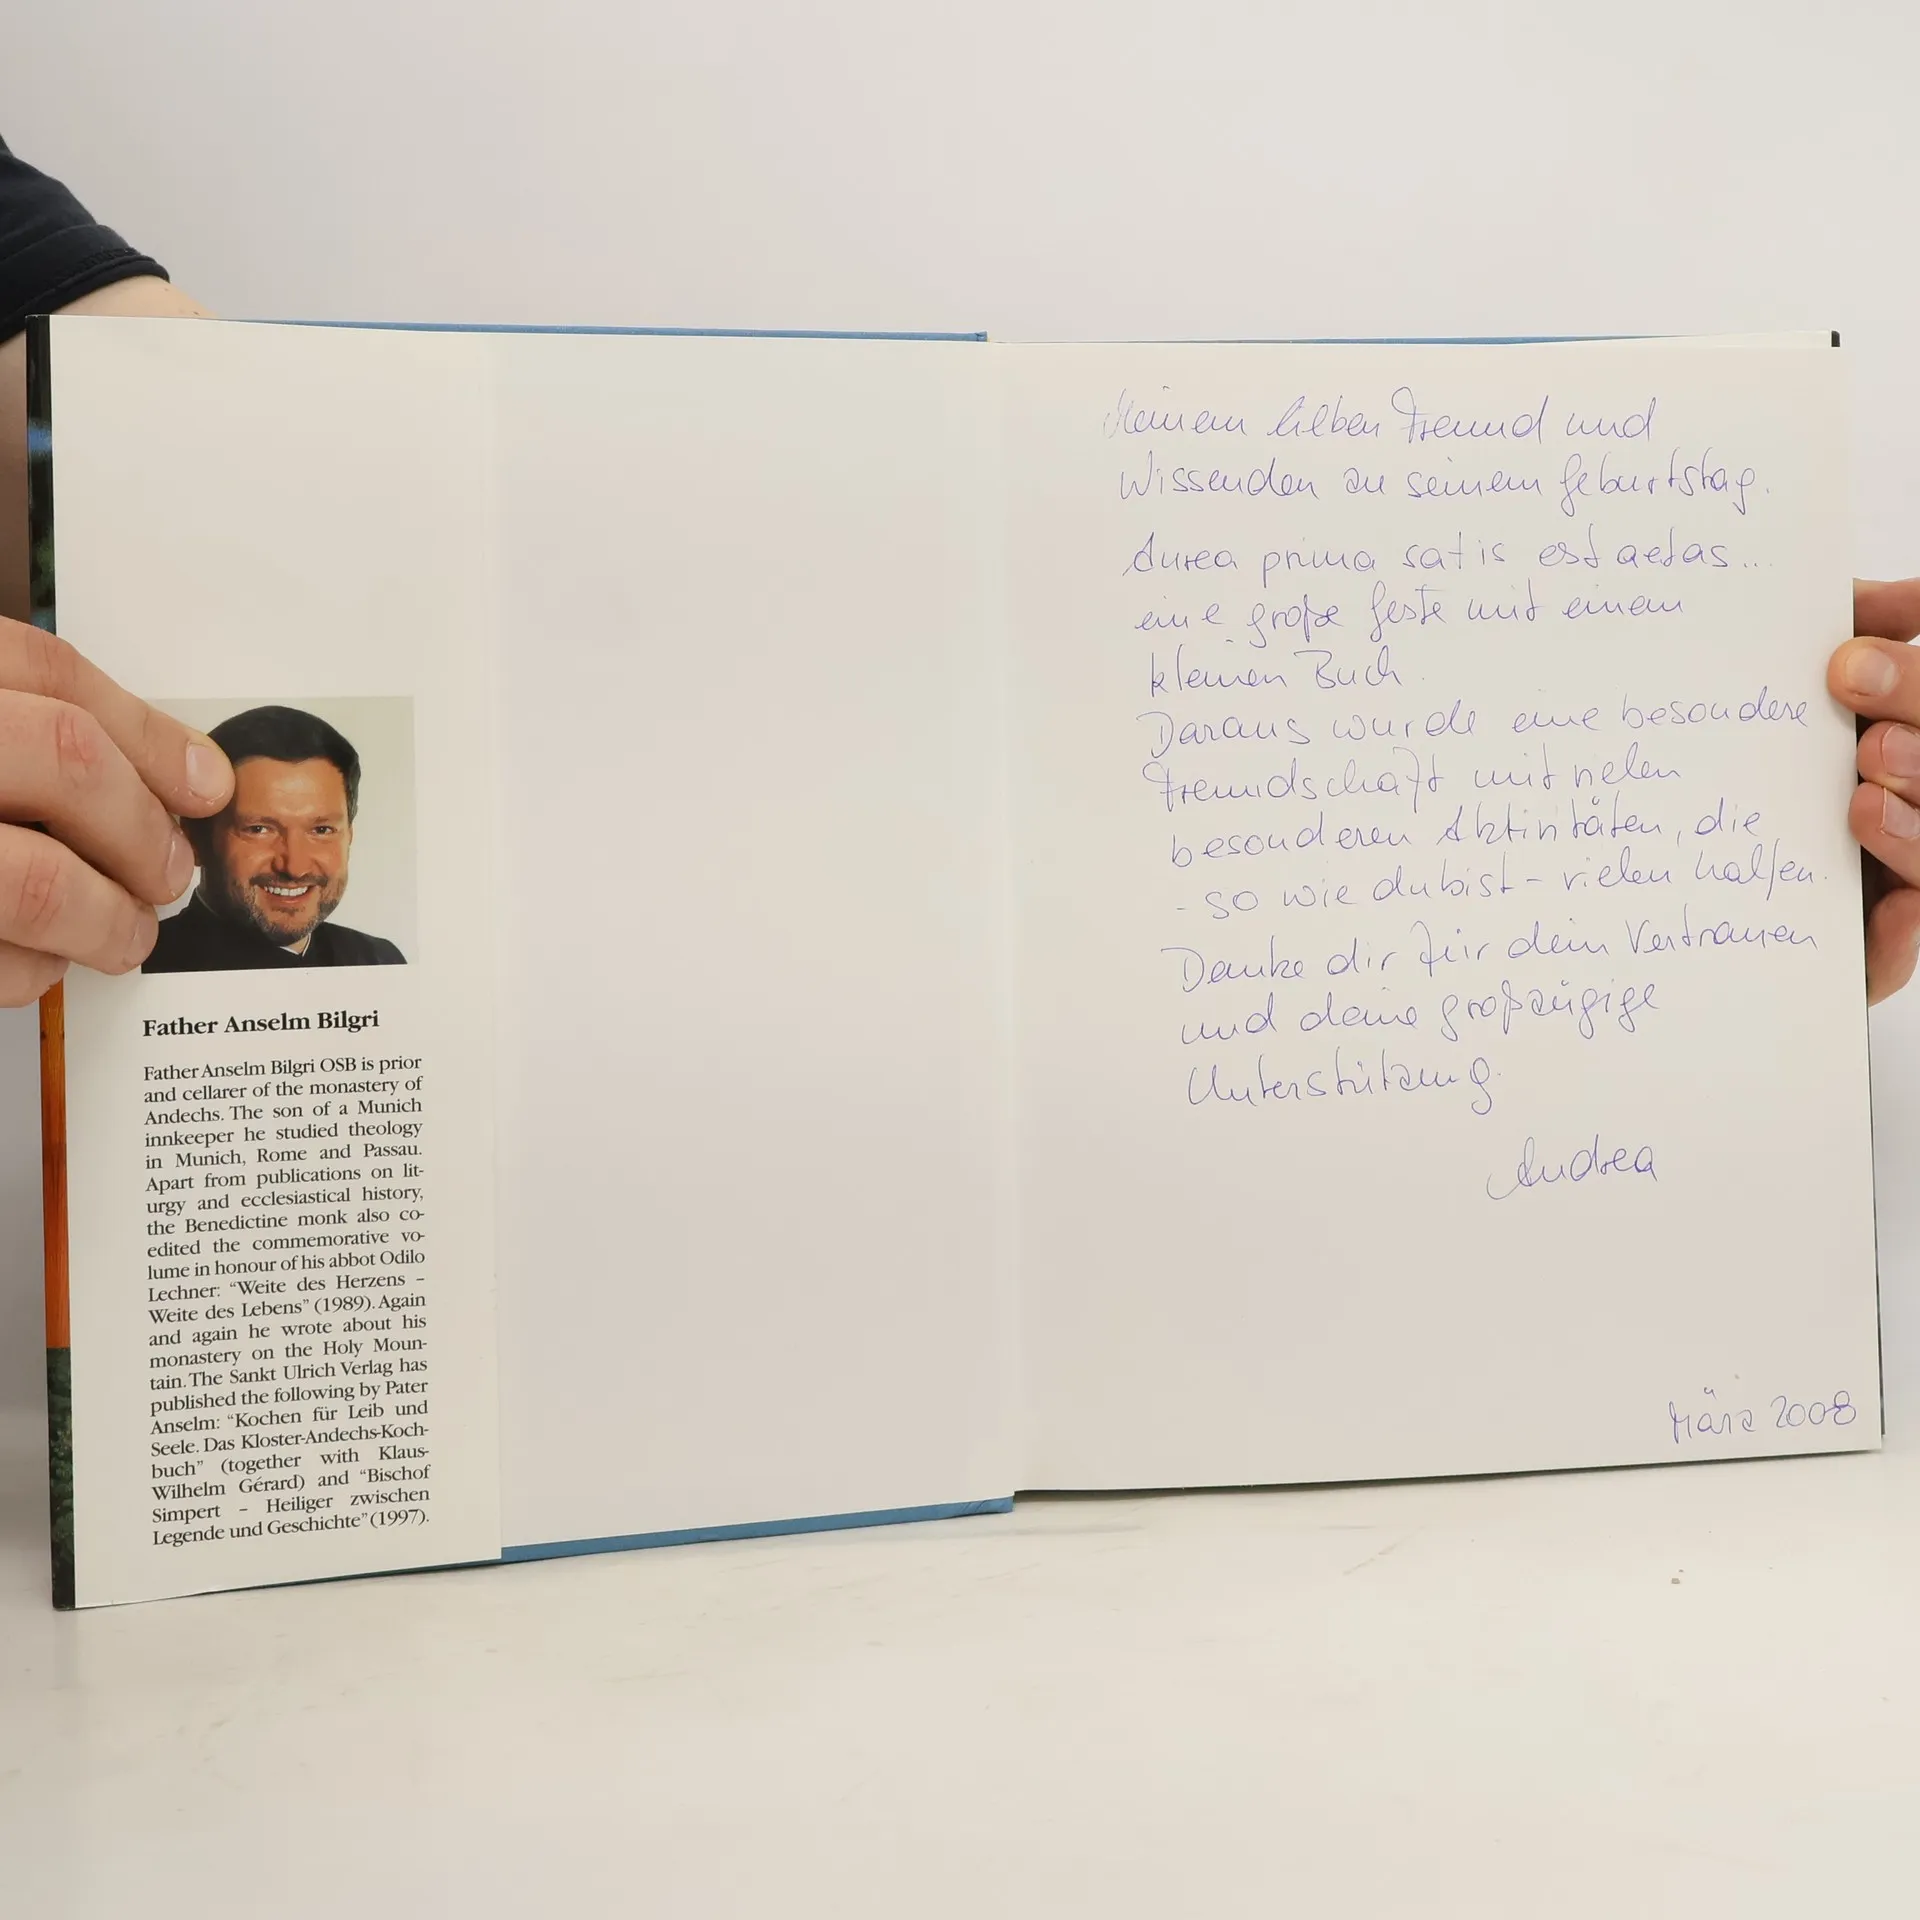 Father Anselm Bilgri
Father Anselm Bilgri OSB is prior
and cellarer of the monastery of
Andechs. The son of a Munich
innkeeper he studied theology
in Munich, Rome and Passau.
Apart from publications on lit-
urgy and ecclesiastical history,
the Benedictine monk also co-
edited the commemorative vo-
lume in honour of his abbot Odilo
Lechner: “Weite des Herzens –
Weite des Lebens” (1989). Again
and again he wrote about his
monastery on the Holy Moun-
tain. The Sankt Ulrich Verlag has
published the following by Pater
Anselm: “Kochen für Leib und
Seele. Das Kloster-Andechs-Koch-
buch” (together with Klaus-
Wilhelm Gérard) and “Bischof
Simpert – Heiliger zwischen
Legende und Geschichte” (1997).
Meinem lieben Freund und
Wissenden zu seinem Geburtstag.
Aurea prima satis est aetas...
eine große Geste mit einem
kleinen Buch.
Daraus wurde eine besondere
Freundschaft mit vielen
besonderen Aktivitäten, die
- so wie du bist - vielen halfen.
Danke dir für dein Vertrauen
und deine großzügige
Unterstützung.
Andrea
März 2008